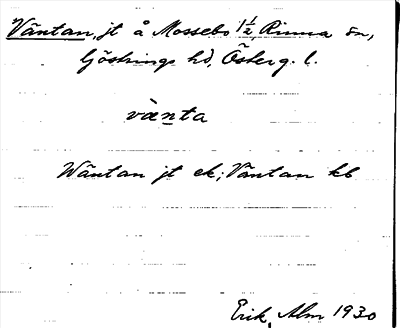 Väntan, jt å Mossebo 1 1/2, Rinna sn,
Göstrings hd, Österg. l.
vànta
Wäntan jt ek; Väntan kb
Erik Alm 1930